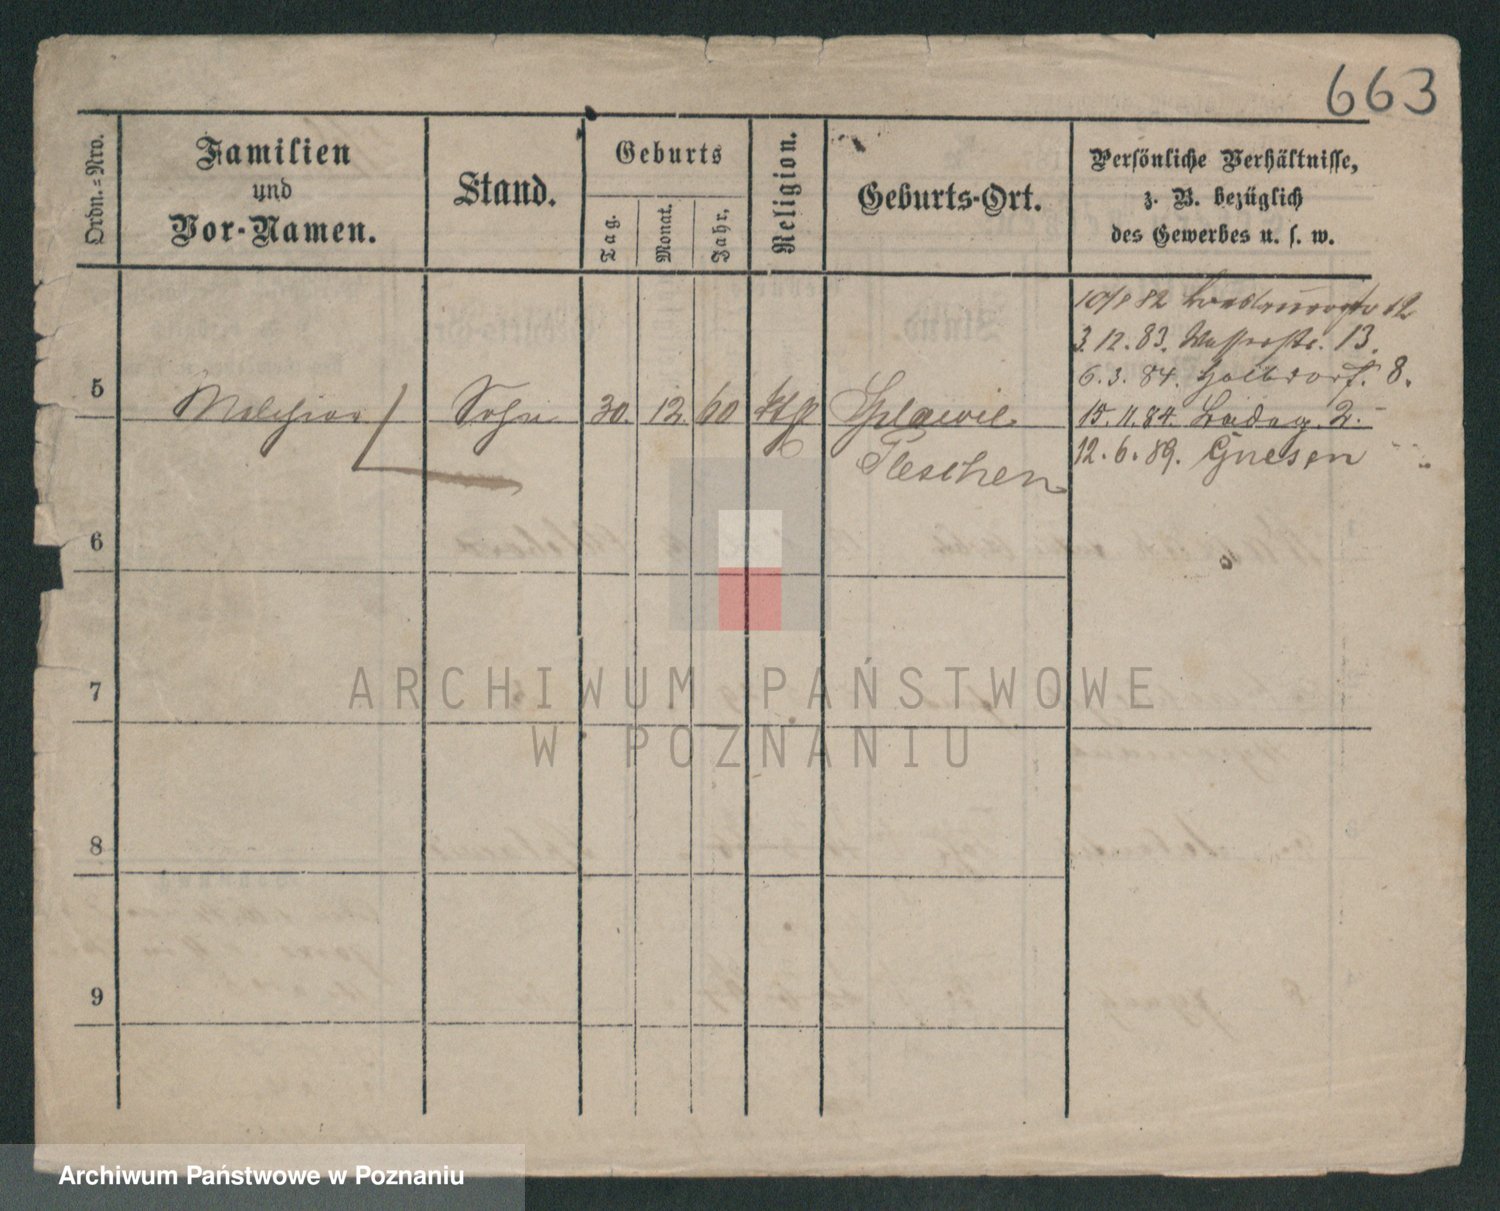 663
Ordn.=Nro.
Familien
und
Vor-Namen.
Stand.
Geburts
Tag.
Monat.
Jahr.
Religion.
Geburts-Ort.
Persönliche Verhältnisse,
z. B. bezüglich
des Gewerbes u. s. w.
10/8 82 12
3. 12. 83. 13.
6. 3. 84. 8.
5 Melchior Sohn 30. 12. 60 15. 11. 84. 2.
Pleschen 12. 6. 89. Gnesen
6
7
8
9
ARCHIWUM PAŃSTWOWE
W POZNANIU
Archiwum Państwowe w Poznaniu